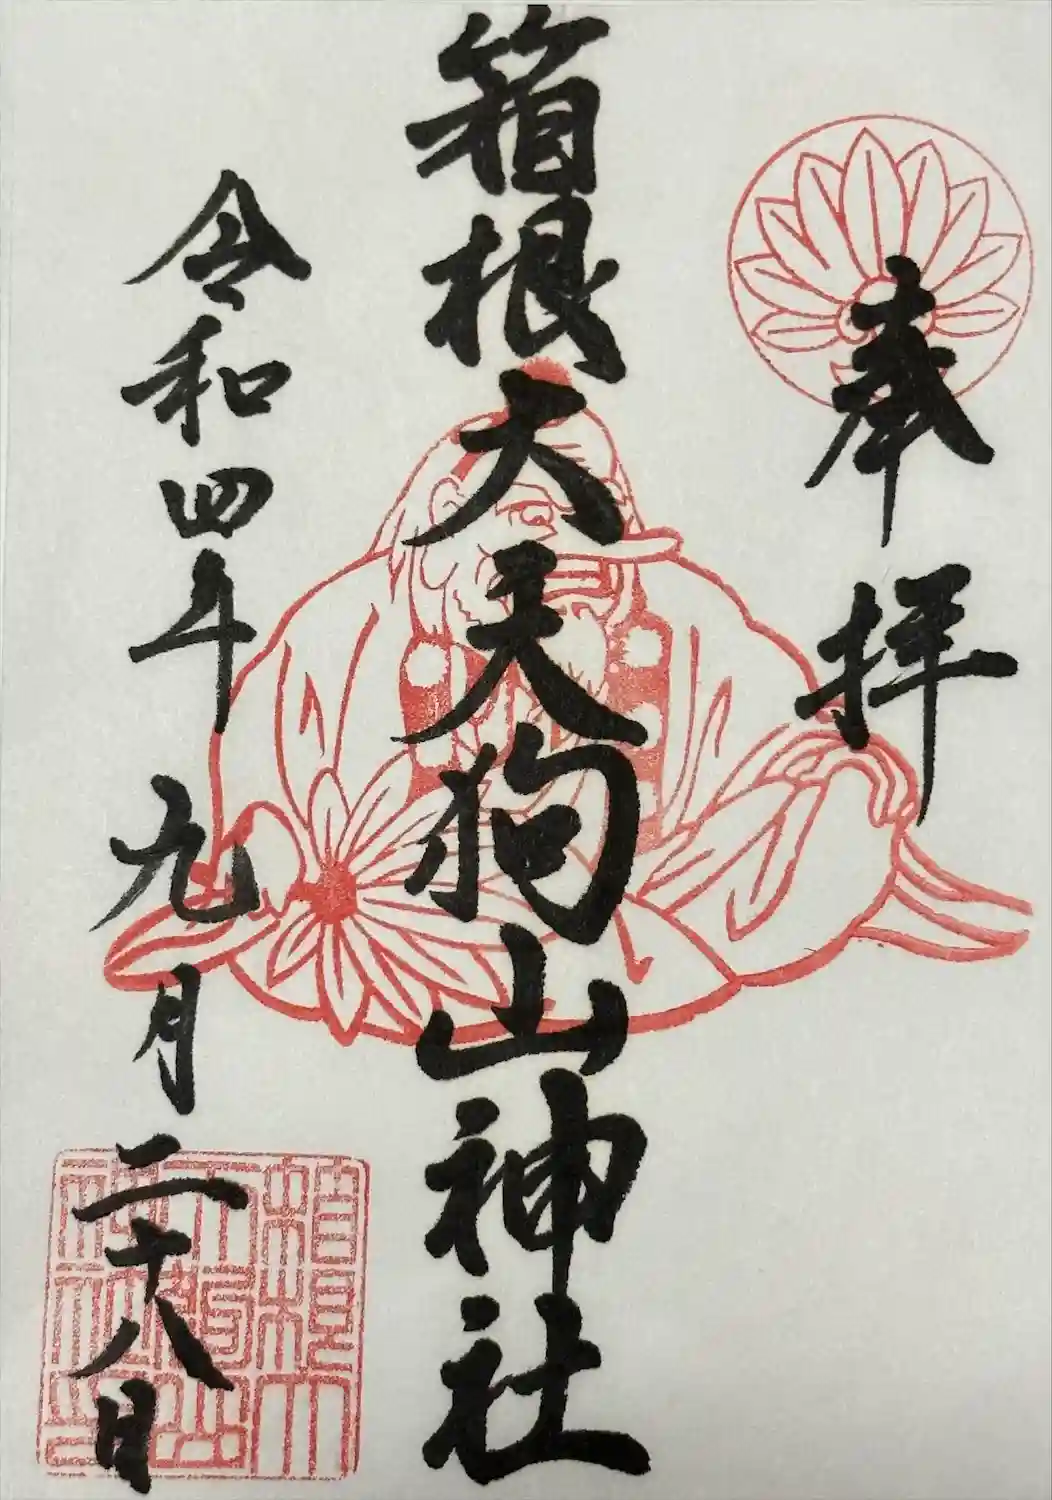 奉拝
箱根大天狗山神社
令和四年九月二十八日